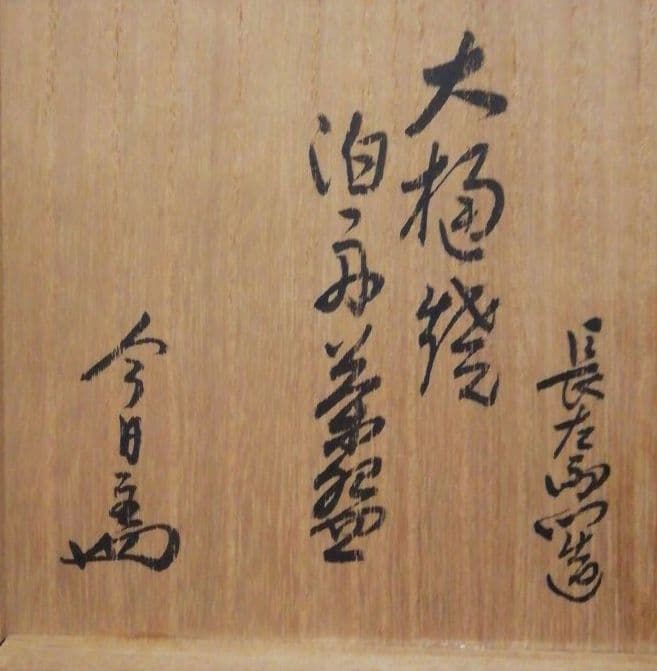 長左衛門造
大樋焼
泊舟茶盌
今日主